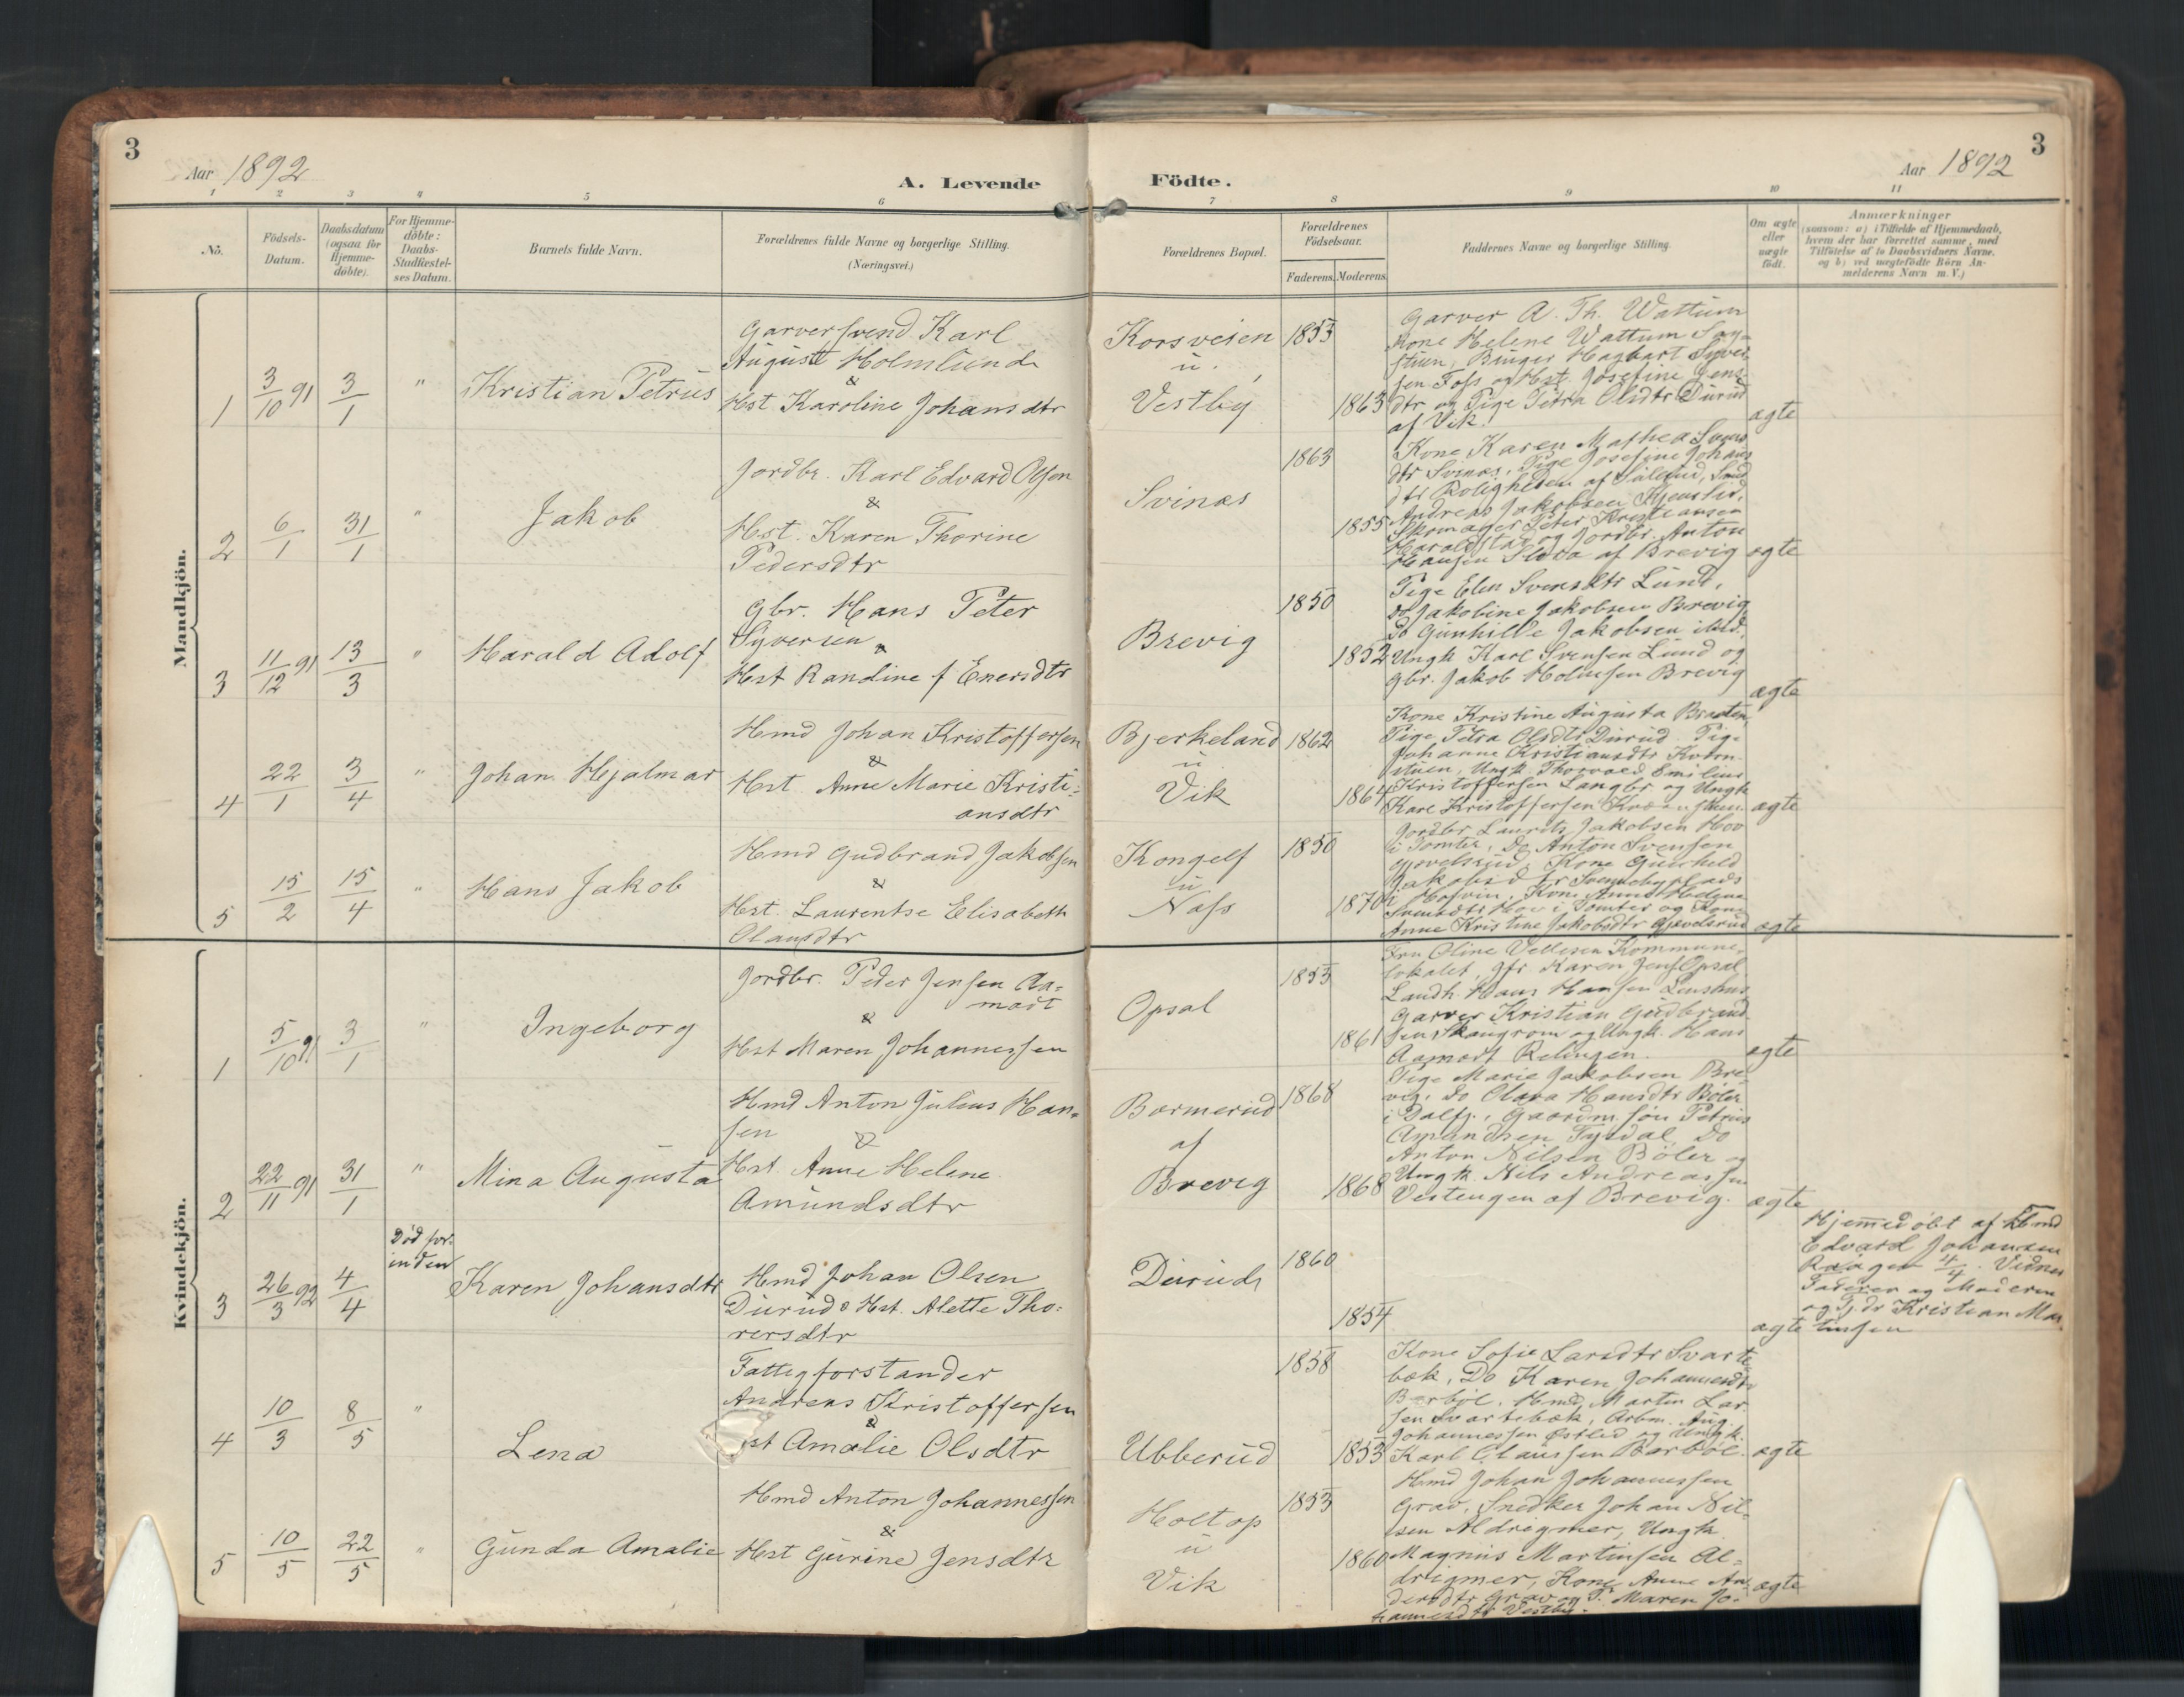 3
Aar 1892
A. Levende Födte.
Aar 1892
3
1 2 3 4 5 6 7 8 9 10 11
No.
Födsels-
Datum.
Daabsdatum
(ogsaa for
Hjemme-
döbte).
For Hjemme-
döbte:
Daabs-
Stadfæstel-
ses Datum.
Barnets fulde Navn.
Forældrenes fulde Navne og borgerlige Stilling.
(Næringsvei.)
Forældrenes Bopæl.
Forældrenes
Födselsaar.
Faderens. Moderens.
Faddernes Navne og borgerlige Stilling.
Om ægte
eller
uægte
födt.
Anmærkninger
(saasom: a) i Tilfælde af Hjemmedaab,
hvem der har forrettet samme, med
Tilföielse af to Daabsvidners Navne.
og b) ved uægtefödte Börn An-
melderens Navn m. V.)
Mandkjön.
1
3/10 91
3/1
"
Kristian Petrus
Garversvend Karl
August Holmlund
&
Hst Karoline Johansdtr
Korsveien
u.
Vestby
1853
1863
Garver A. Th. Wattum
Kone Helene Wattum
Birger Hagbart Syver
sen Foss og Hst. Josefine Jens
dtr og Pige Petra Olsdtr Durud
af Vik.
ægte
2
6/1
31/1
"
Jakob
Jordbr. Karl Edvard Olsen
&
Hst. Karen Thorine
Pedersdtr
Svinæs
1863
1855
Kone Karen Mathea
dtr Svinæs, Pige Josefine Johans
dtr Roligheden af
Andreas Jakobsen
Skomager Peter Kristiansen
Haraldstad og Jordbr. Anton
Hansen af Brevig
ægte
3
11/12 91
13/3
"
Harald Adolf
Gbr. Hans Peter
Syversen &
Hst Randine f Enersdtr
Brevig
1850
1852
Pige Elen Svensdtr Lund,
Do Jakobine Jakobsen Brevig
Do Gunhilde Jakobsen ibid.,
Ungk Karl Svensen Lund og
Gbr. Jakob Holmsen Brevig
ægte
4
22/1
3/4
"
Johan Hjalmar
Hmd Johan Kristoffersen
&
Hst. Anne Marie Kristi-
ansdtr
Bjerkeland
u
Vik
1862
1864
Kone Kristine Augusta Braaten
Pige Petra Olsdtr Durud. Pige
Johanne Kristiansdtr
Ungk. Thorvald Emilius
Kristoffersen Langbr og Ungk
Karl Kristoffersen
ægte
5
15/2
15/4
"
Hans Jakob
Hmd Gudbrand Jakobsen
&
Hst. Laurentse Elisabeth
Olausdtr
Kongelf
u
Næss
1850
1870
Jordbr Laurits Jakobsen Hov
i Tomter, Do Anton Svensen
Kone Gunhild
Jakobsdtr
Kone Anne Helene
Hov i Tomter og Kone
Anne Kristine Jakobsdtr
ægte
Kvindekjön.
1
5/10 91
3/1
"
Ingeborg
Jordbr. Peder Jensen Aa-
modt
&
Hst Maren Johannessen
Opsal
1853
1861
Fru Oline Kommune-
lokalet, Jfr Karen Jens Opsal
Landh. Hans Hansen
Garver Kristian Gudbrand
sen og Ungk. Hans
Aamodt Relingen.
ægte
2
22/11 91
31/1
"
Mina Augusta
Hmd Anton Julius Han-
sen
&
Hst. Anne Helene
Amundsdtr
Barmerud
af
Brevig
1868
1868
Pige Marie Jakobsen Bre-
vig, Do Olava Hansdtr Böler
i Gaardm. sön Petrus
Amundsen Do
Anton Nilsen Böler og
Ungk. Nils Andreassen
Vestengen af Brevig.
ægte
3
26/3 92
4/4
Död for-
inden
Karen Johansdtr
Hmd Johan Olsen
Durud & Hst. Alette Tho-
rersdtr
Durud
1860
1854
ægte
Hjemmedöbt af Hmd
Edvard Johansen
4/4. Vidner
Faderen og Moderen
og Kristian Mar
tinsen
4
10/3
8/5
"
Lena
Fattigforstander
Andreas Kristoffersen
&
Hst Amalie Olsdtr
Ubberud
1858
1853
Kone Sofie Larsdtr Svarte-
bæk, Do Karen Johannesdtr
Barböl, Hmd Martin Lar
sen Svartebæk, Arbm. Aug.
Johannessen Östlid og Ungk.
Karl Clausen Barböl.
ægte
5
10/5
22/5
"
Gunda Amalie
Hmd Anton Johannessen
&
Hst Gurine Jensdtr
Holtop
u
Vik
1853
1860
Hmd Johan Johannessen
Grav, Snedker Johan Nil-
sen Aldrigmer, Ungk.
Magnus Martinsen Al-
drigmer, Kone Anne An
dersdtr Grav og P. Maren Jo-
hannesdtr Vestby.
ægte